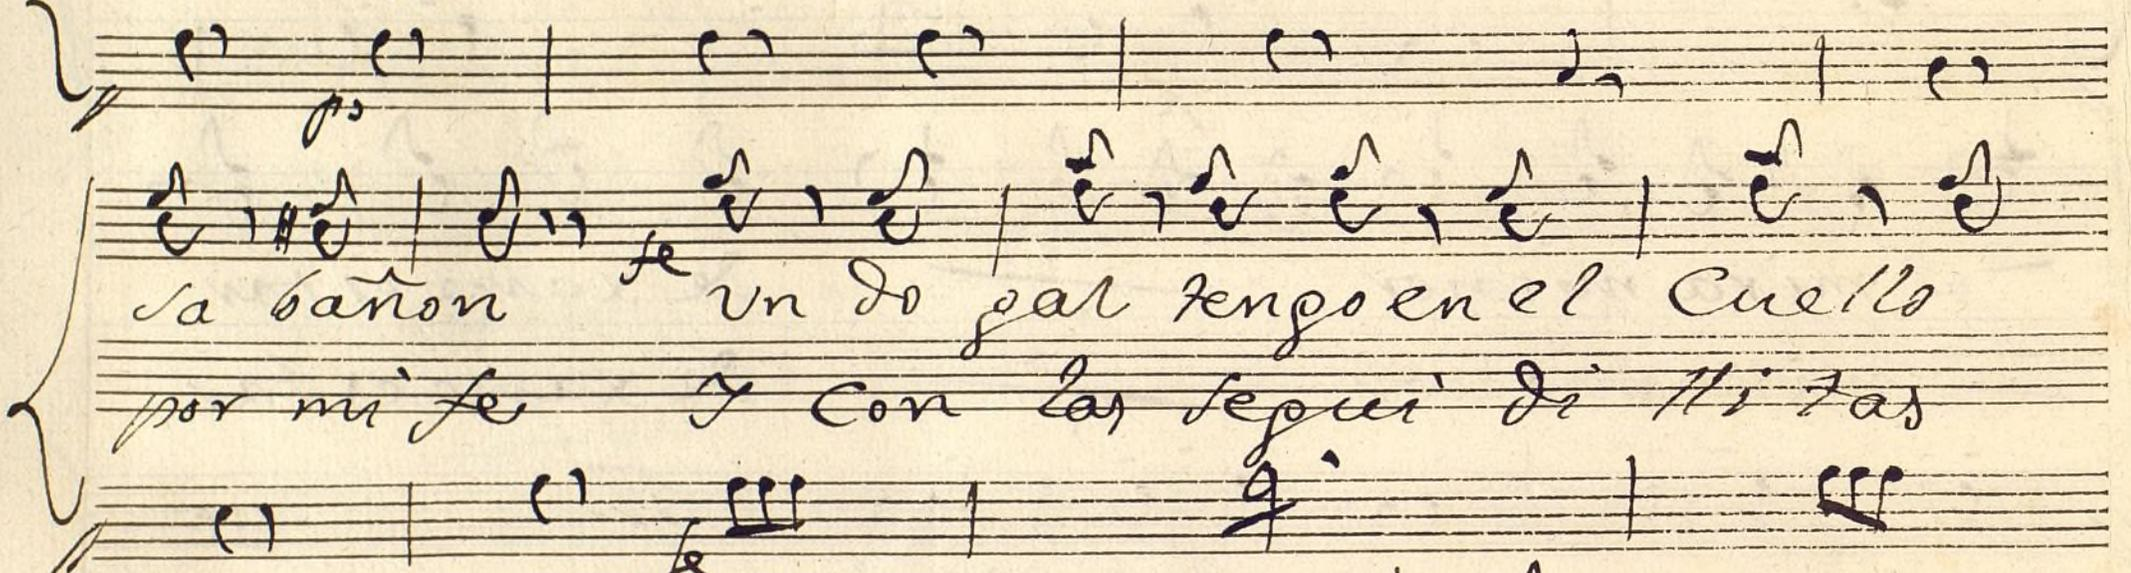 po
fe
sa bañon un do gal tengo en el Cuello
por mi fe Y Con las segui di lli tas
fe